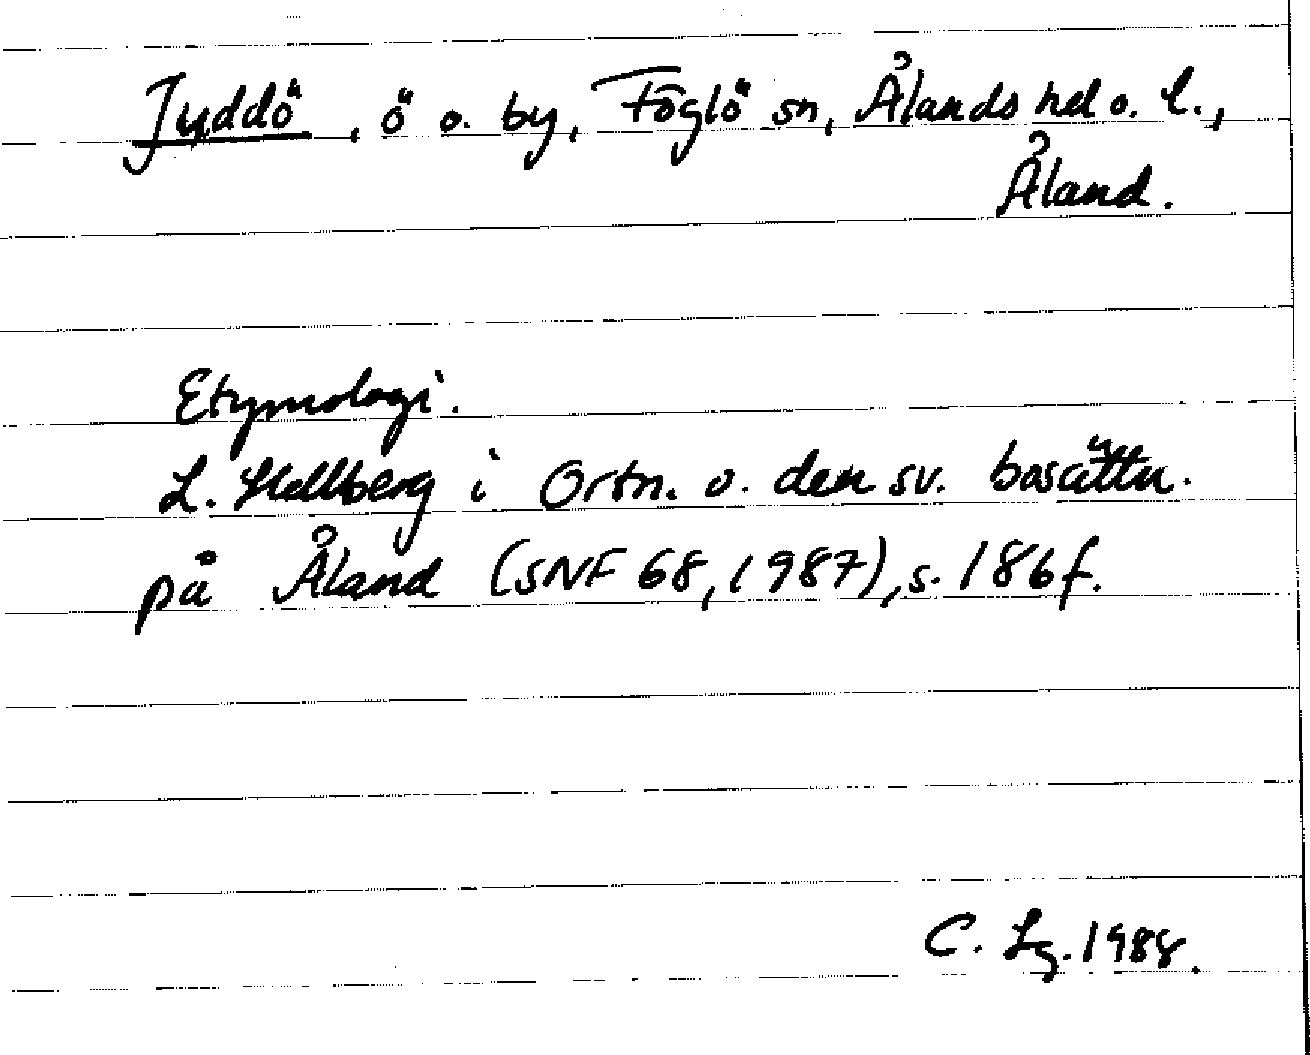 Jyddö, ö o. by, Föglö sn, Ålands hd o. l.,
Åland.
Etymologi.
L. Hellberg i Ortn. o. den sv. bosättn.
på Åland (SNF 68, 1987), s. 186 f.
C. Lg. 1988.